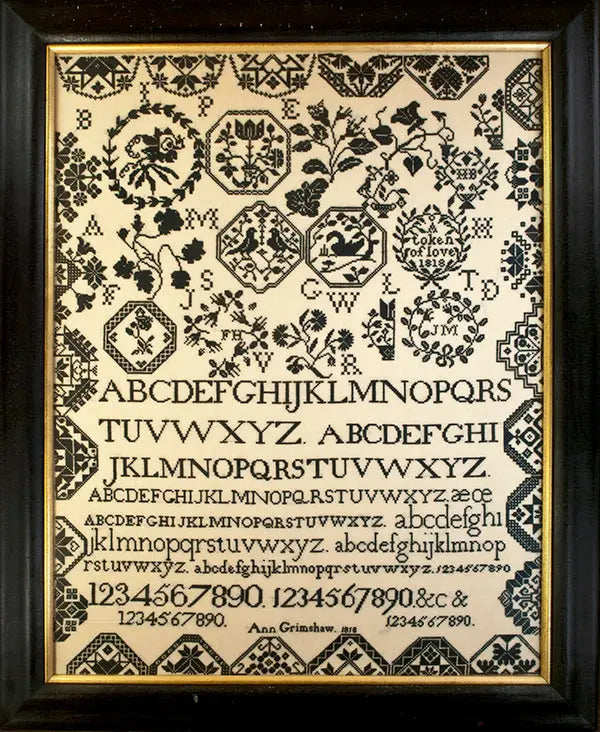 I
B P E
HB
A M H
A
token
of love
1818
F J S C W L T D
FH V R JM
ABCDEFGHIJKLMNOPQRS
TUVWXYZ. ABCDEFGHI
JKLMNOPQRSTUVWXYZ.
ABCDEFGHIJKLMNOPQRSTUVWXYZ.æœ
ABCDEFGHIJKLMNOPQRSTUVWXYZ. abcdefghi
jklmnopqrstuvwxyz. abcdefghijklmnop
rstuvwxyz. abcdefghijklmnopqrstuvwxyz.1234567890
1234567890. 1234567890.&c &
1234567890. Ann Grimshaw. 1818 1234567890.